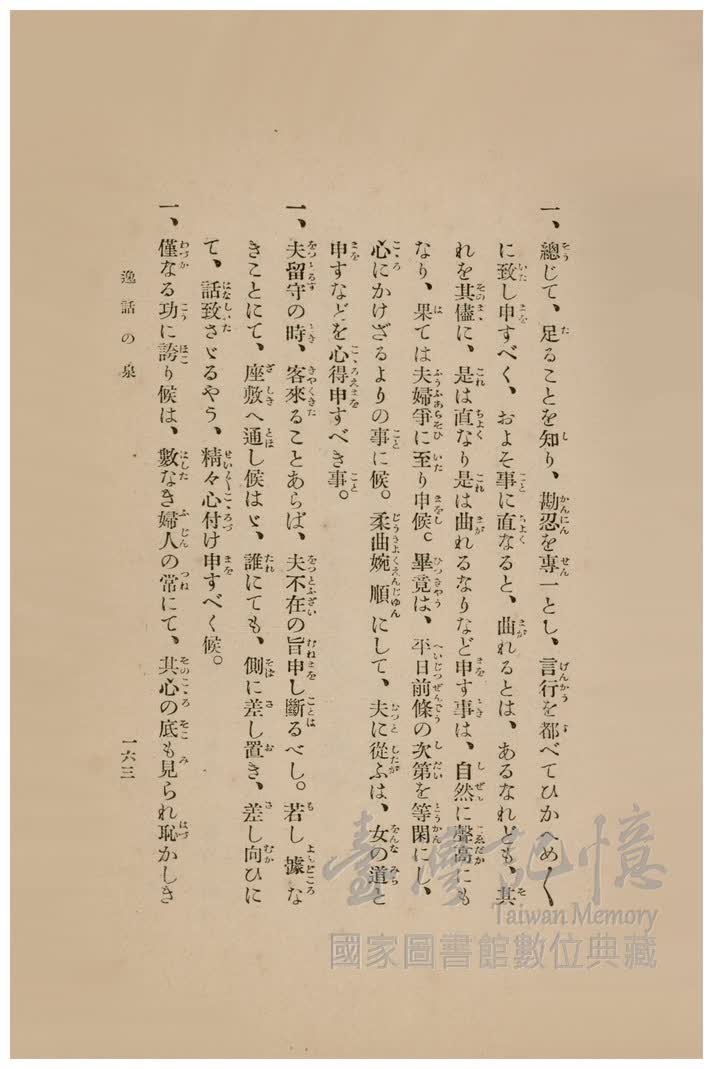 一、總じて、足ることを知り、勘忍を專一とし、言行を都べてひかへめ〱
に致し申すべく、およそ事に直なると、曲れるとは、あるなれども、其
れを其儘に、是は直なり是は曲れるなりなど申す事は、自然に聲高にも
なり、果ては夫婦爭に至り申候。畢竟は、平日前條の次第を等閑にし、
心にかけざるよりの事に候。柔曲婉順にして、夫に從ふは、女の道と
申すなどを心得申すべき事。
一、夫留守の時、客來ることあらば、夫不在の旨申し斷るべし。若し據な
きことにて、座敷へ通し候はゞ、誰にても、側に差し置き、差し向ひに
て、話致さゞるやう、精々心付け申すべく候。
一、僅なる功に誇り候は、數なき婦人の常にて、其心の底も見られ恥かしき
逸話の泉
一六三
臺灣記憶
Taiwan Memory
國家圖書館數位典藏